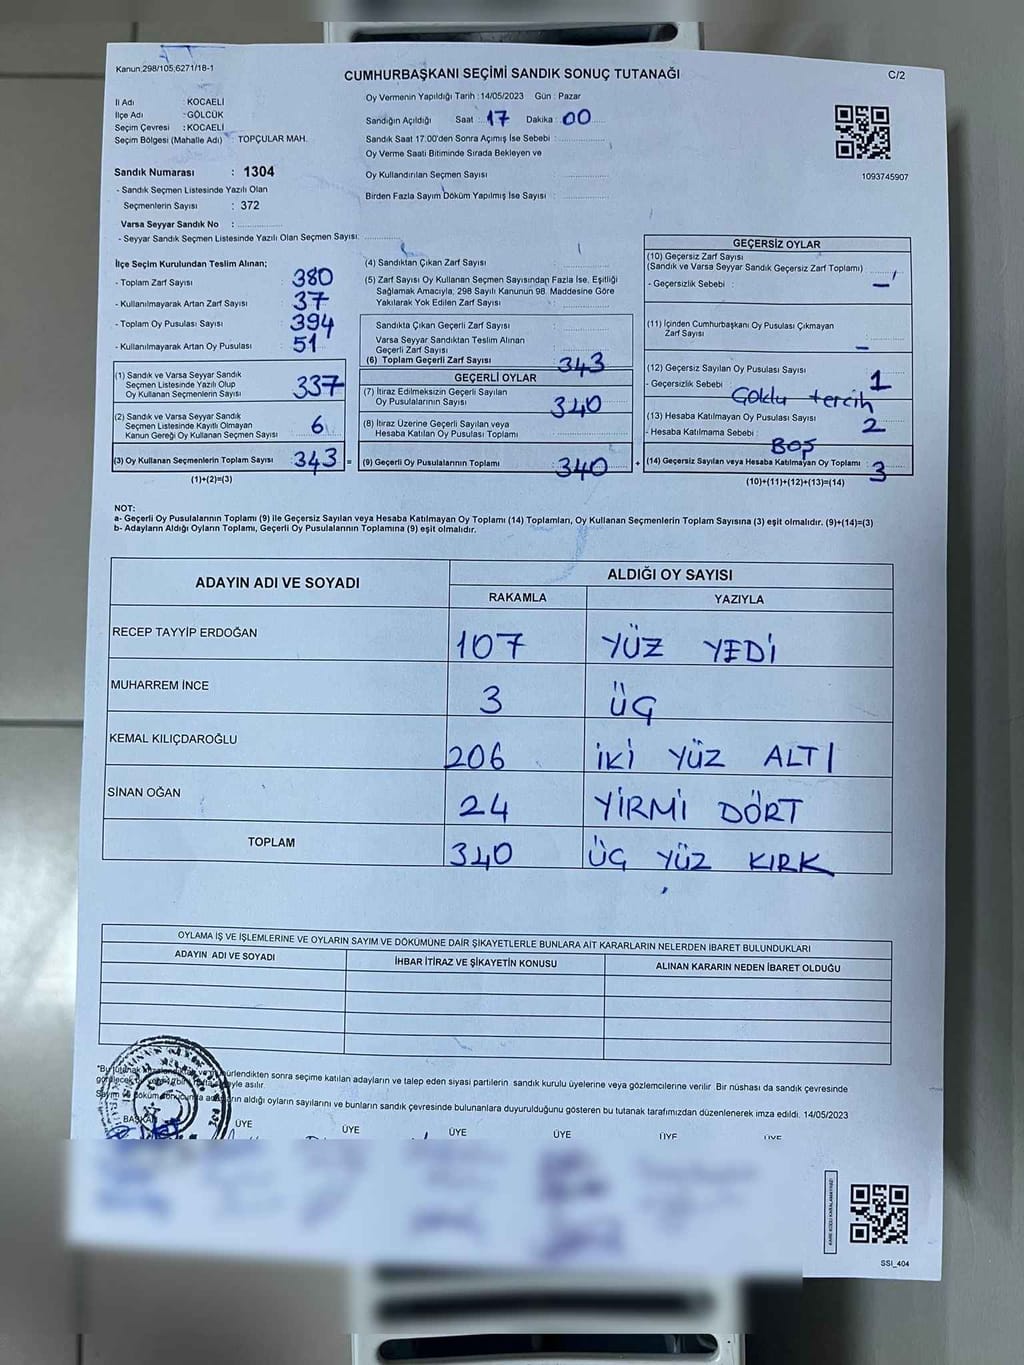 Kanun,298/105,6271/18-1
CUMHURBAŞKANI SEÇİMİ SANDIK SONUÇ TUTANAĞI
C/2
İl Adı : KOCAELİ
İlçe Adı : GÖLCÜK
Seçim Çevresi : KOCAELİ
Seçim Bölgesi (Mahalle Adı) : TOPÇULAR MAH.
Sandık Numarası : 1304
- Sandık Seçmen Listesinde Yazılı Olan
Seçmenlerin Sayısı : 372
Varsa Seyyar Sandık No :
- Seyyar Sandık Seçmen Listesinde Yazılı Olan Seçmen Sayısı:
Oy Vermenin Yapıldığı Tarih : 14/05/2023 Gün : Pazar
Sandığın Açıldığı Saat : 17 Dakika : 00
Sandık Saat 17.00'den Sonra Açımış İse Sebebi :
Oy Verme Saati Bitiminde Sırada Bekleyen ve
Oy Kullandırılan Seçmen Sayısı
Birden Fazla Sayım Döküm Yapılmış İse Sayısı :
1093745907
İlçe Seçim Kurulundan Teslim Alınan;
- Toplam Zarf Sayısı : 380
- Kullanılmayarak Artan Zarf Sayısı : 37
- Toplam Oy Pusulası Sayısı : 394
- Kullanılmayarak Artan Oy Pusulası : 51
(1) Sandık ve Varsa Seyyar Sandık
Seçmen Listesinde Yazılı Olup
Oy Kullanan Seçmenlerin Sayısı : 337
(2) Sandık ve Varsa Seyyar Sandık
Seçmen Listesinde Kayıtlı Olmayan
Kanun Gereği Oy Kullanan Seçmen Sayısı : 6
(3) Oy Kullanan Seçmenlerin Toplam Sayısı : 343 =
(1)+(2)=(3)
(4) Sandıktan Çıkan Zarf Sayısı :
(5) Zarf Sayısı Oy Kullanan Seçmen Sayısından Fazla İse, Eşitliği
Sağlamak Amacıyla, 298 Sayılı Kanunun 98. Maddesine Göre
Yakılarak Yok Edilen Zarf Sayısı :
Sandıkta Çıkan Geçerli Zarf Sayısı :
Varsa Seyyar Sandıktan Teslim Alınan
Geçerli Zarf Sayısı
(6) Toplam Geçerli Zarf Sayısı : 343
GEÇERLİ OYLAR
(7) İtiraz Edilmeksizin Geçerli Sayılan
Oy Pusulalarının Sayısı : 340
(8) İtiraz Üzerine Geçerli Sayılan veya
Hesaba Katılan Oy Pusulası Toplamı :
(9) Geçerli Oy Pusulalarının Toplamı : 340 +
GEÇERSİZ OYLAR
(10) Geçersiz Zarf Sayısı
(Sandık ve Varsa Seyyar Sandık Geçersiz Zarf Toplamı) :
- Geçersizlik Sebebi : –
(11) İçinden Cumhurbaşkanı Oy Pusulası Çıkmayan
Zarf Sayısı : –
(12) Geçersiz Sayılan Oy Pusulası Sayısı : 1
- Geçersizlik Sebebi : Çoklu tercih
(13) Hesaba Katılmayan Oy Pusulası Sayısı : 2
- Hesaba Katılmama Sebebi : BOŞ
(14) Geçersiz Sayılan veya Hesaba Katılmayan Oy Toplamı : 3
(10)+(11)+(12)+(13)=(14)
NOT:
a- Geçerli Oy Pusulalarının Toplamı (9) ile Geçersiz Sayılan veya Hesaba Katılmayan Oy Toplamı (14) Toplamları, Oy Kullanan Seçmenlerin Toplam Sayısına (3) eşit olmalıdır. (9)+(14)=(3)
b- Adayların Aldığı Oyların Toplamı, Geçerli Oy Pusulalarının Toplamına (9) eşit olmalıdır.
ADAYIN ADI VE SOYADI ALDIĞI OY SAYISI
RAKAMLA YAZIYLA
RECEP TAYYİP ERDOĞAN 107 YÜZ YEDİ
MUHARREM İNCE 3 ÜÇ
KEMAL KILIÇDAROĞLU 206 İKİ YÜZ ALTI
SİNAN OĞAN 24 YİRMİ DÖRT
TOPLAM 340 ÜÇ YÜZ KIRK
OYLAMA İŞ VE İŞLEMLERİNE VE OYLARIN SAYIM VE DÖKÜMÜNE DAİR ŞİKAYETLERLE BUNLARA AİT KARARLARIN NELERDEN İBARET BULUNDUKLARI
ADAYIN ADI VE SOYADI İHBAR İTİRAZ VE ŞİKAYETİN KONUSU ALINAN KARARIN NEDEN İBARET OLDUĞU
"Bu tutanak sonra seçime katılan adayların ve talep eden siyasi partilerin sandık kurulu üyelerine veya gözlemcilerine verilir. Bir nüshası da sandık çevresinde
asılır.
Sayım aldığı oyların sayılarını ve bunların sandık çevresinde bulunanlara duyurulduğunu gösteren bu tutanak tarafımızdan düzenlenerek imza edildi. 14/05/2023
BAŞKAN ÜYE ÜYE ÜYE ÜYE ÜYE ÜYE
SSI_404